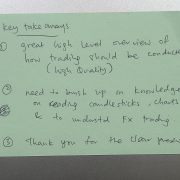 key takeaways
① great high level overview of
how trading should be conducte
(high Quality)
② need to brush up on knowledge
on reading candlesticks, charts
& to understd Fx trading
③ Thank you for the clear prese